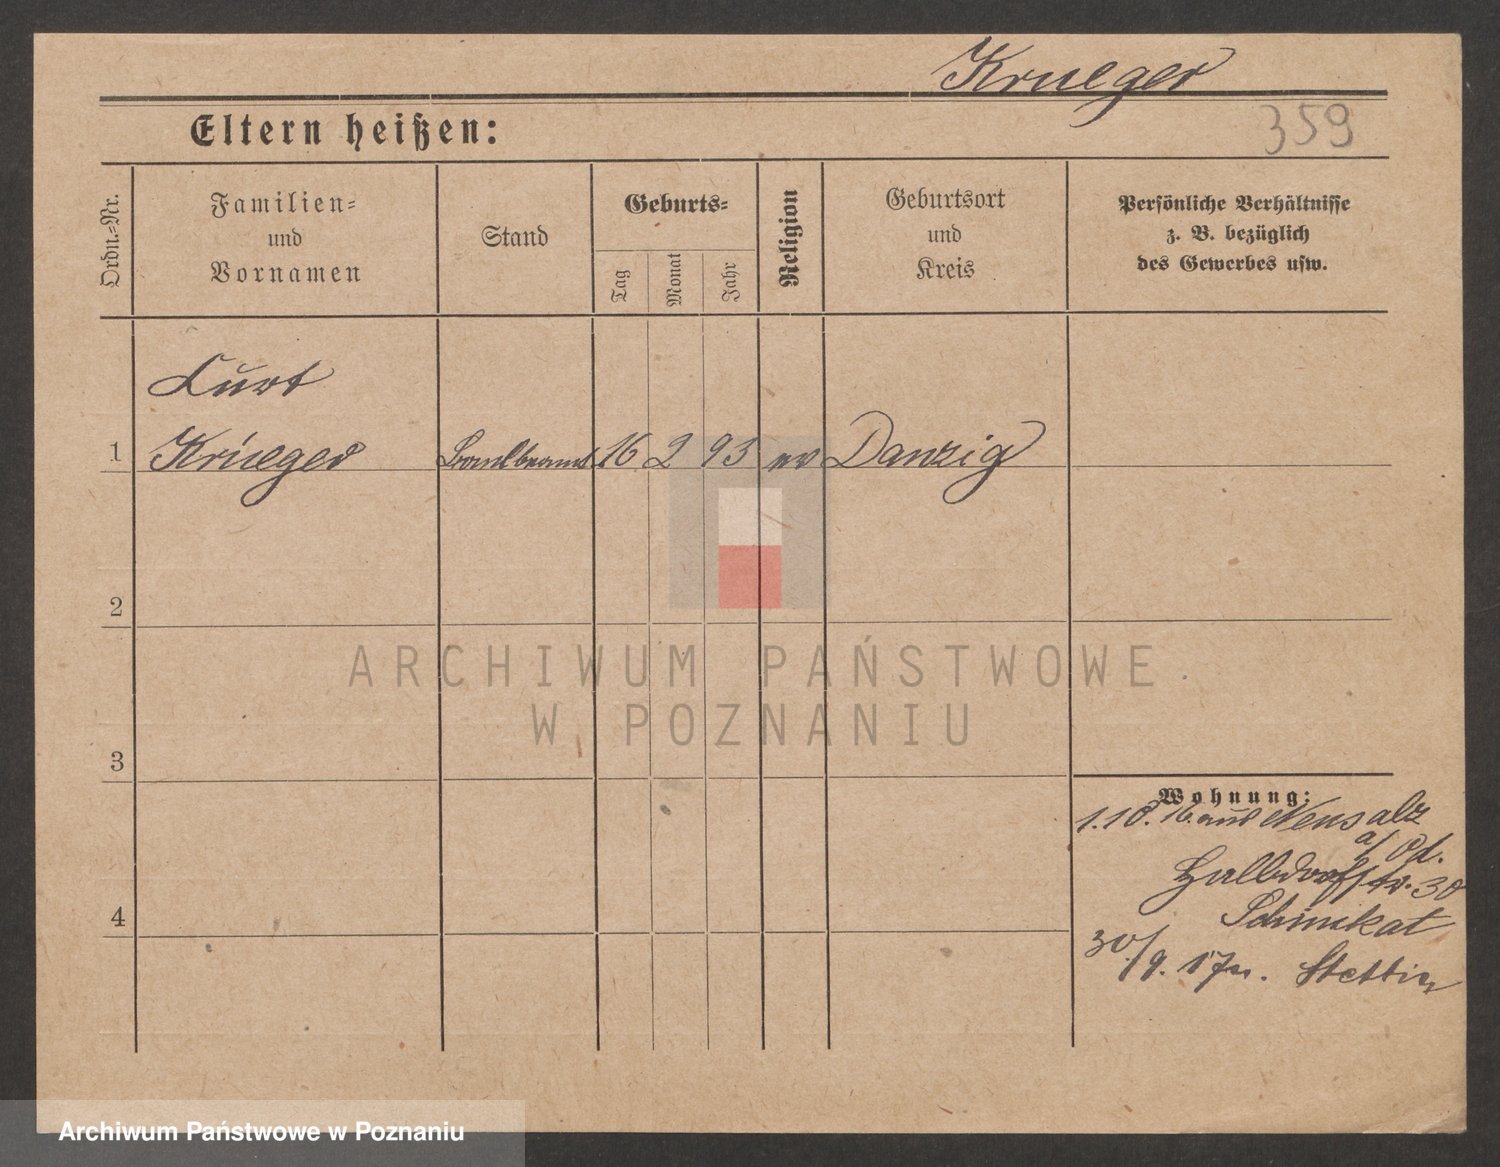 Krueger
359
Eltern heißen:
Ordn.-Nr.
Familien-
und
Vornamen
Stand
Geburts-
Tag
Monat
Jahr
Religion
Geburtsort
und
Kreis
Persönliche Verhältnisse
z. B. bezüglich
des Gewerbes usw.
Curt
1 Krueger Bankbeamt. 16 2 93 ev Danzig
2
ARCHIWUM PAŃSTWOWE
W POZNANIU
3
Wohnung:
1.10.16. aus Neusalz
a/Od.
Halbdorfstr. 30
Schimkat
30./9. 17 n. Stettin
4
Archiwum Państwowe w Poznaniu